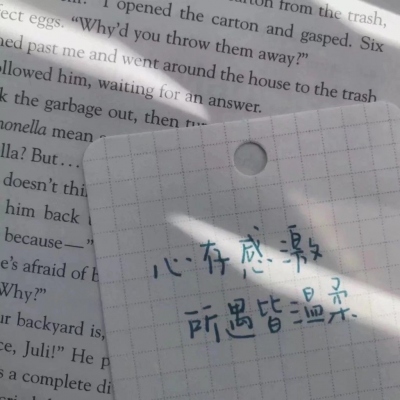 carton from the trash,
I opened the carton and gasped. Six
fect eggs. “Why’d you throw them away?”
past me and went around the house to the trash
ollowed him, waiting for an answer.
k the garbage out, then
monella mean
lla? But . . .
doesn’t
him back
because—”
e’s afraid of
Why?”
ur backyard is,
ce, Juli!” He
s a complete
心存感激
所遇皆温柔